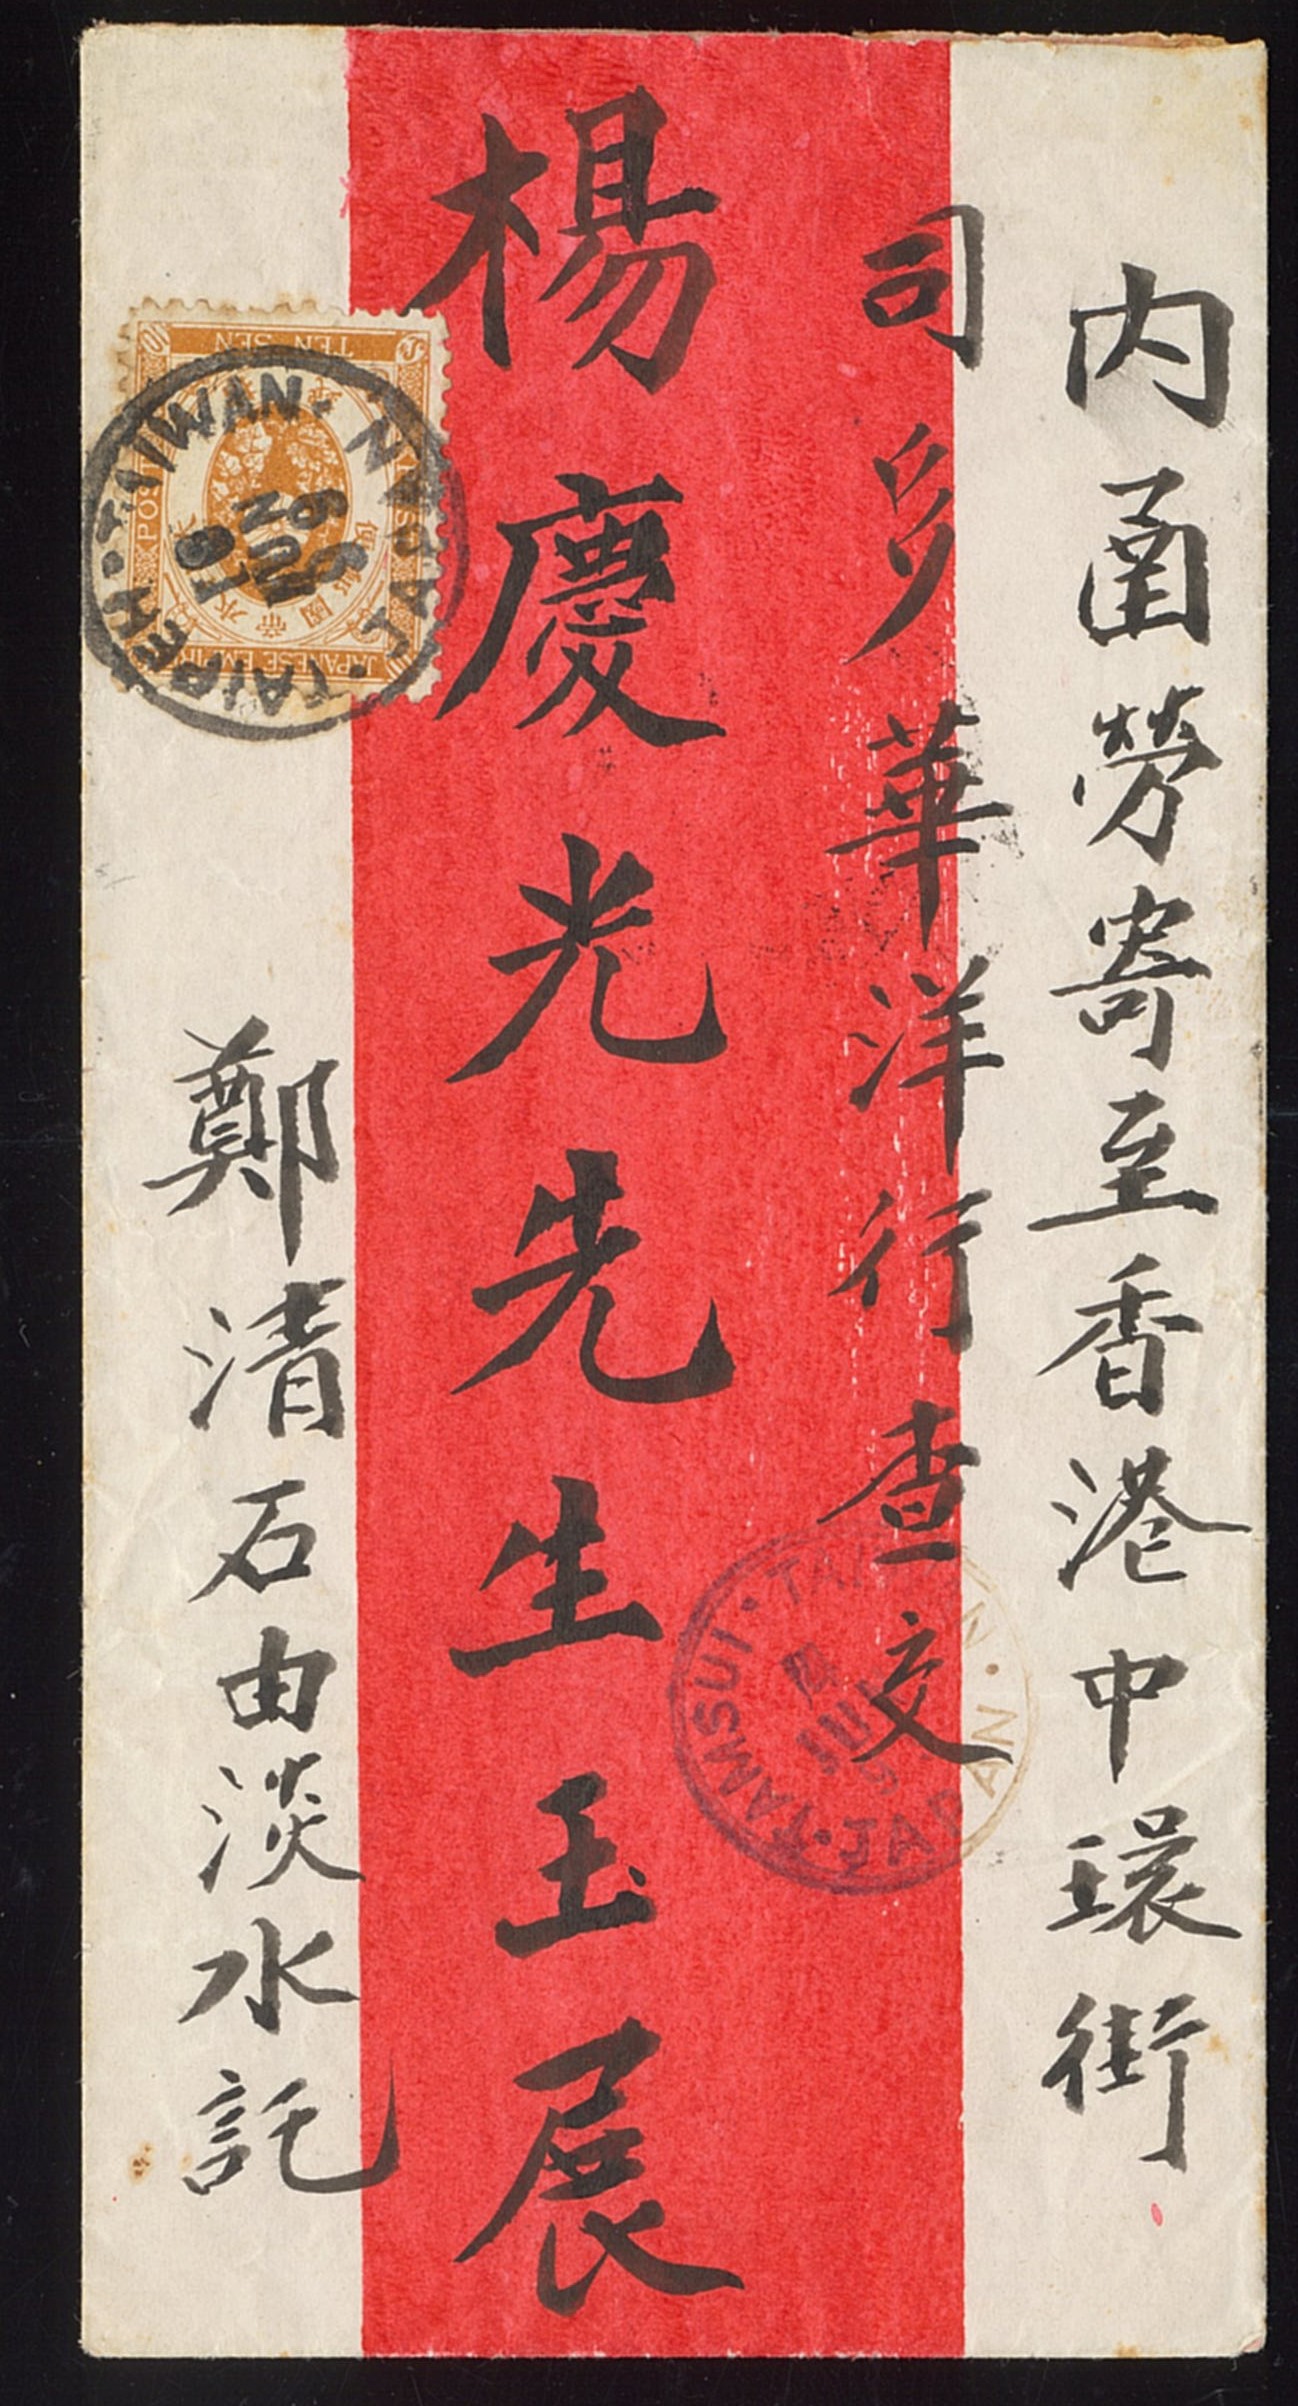 內函勞寄至香港中環街
司多華洋行查交
楊慶光先生玉展
鄭清石由淡水託
TEN SEN
JAPANESE EMPIRE
POST
TAIPEH·TAIWAN·
JAPAN
TAMSUI·
JAPAN